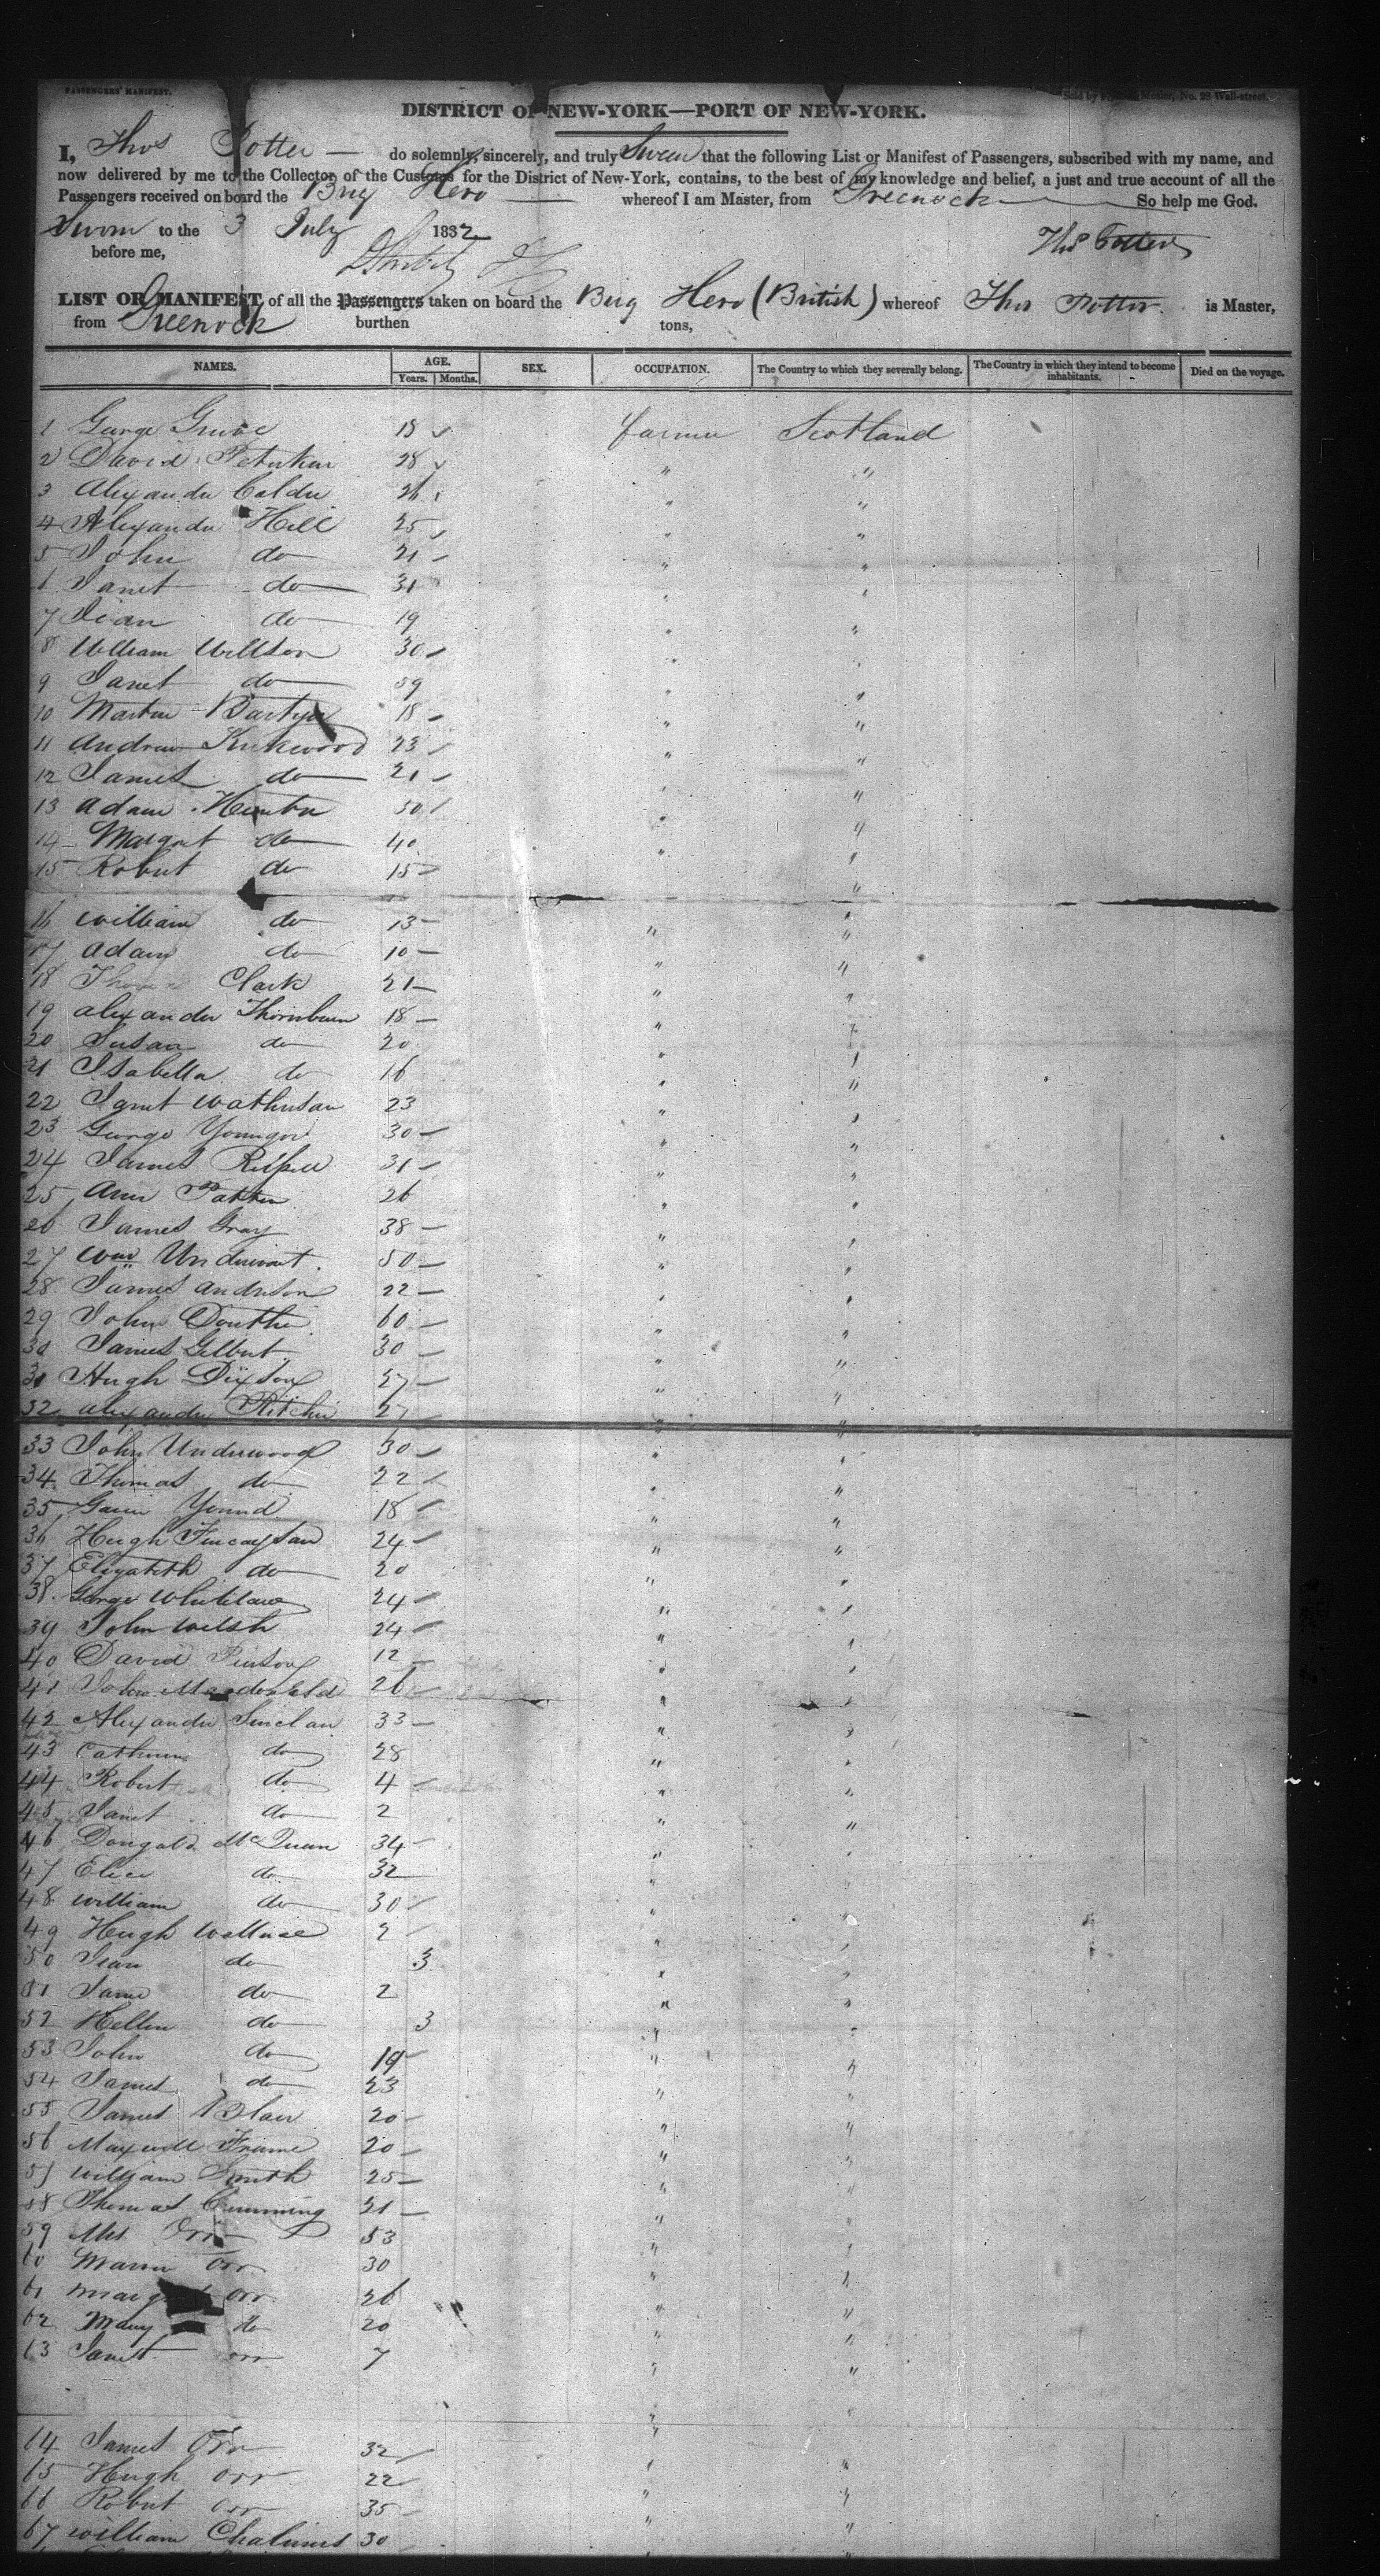 PASSENGERS' MANIFEST.
No. 28 Wall-street.
DISTRICT OF NEW-YORK—PORT OF NEW-YORK.
I, Thos Potter — do solemnly, sincerely, and truly Swear that the following List or Manifest of Passengers, subscribed with my name, and
now delivered by me to the Collector of the Customs for the District of New-York, contains, to the best of my knowledge and belief, a just and true account of all the
Passengers received on board the Brig Hero whereof I am Master, from Greenock So help me God.
Sworn to the 3 July 1832
before me,
Thos Potter
LIST OR MANIFEST of all the Passengers taken on board the Brig Hero (British) whereof Thos Potter is Master,
from Greenock burthen tons,
NAMES. AGE. SEX. OCCUPATION. The Country to which they severally belong. The Country in which they intend to become inhabitants. Died on the voyage.
Years. Months.
1 George Grieve 18 farmer Scotland
2 David Peterkin 28 " "
3 Alexander Calder 26 " "
4 Alexander Hill 25 " "
5 John do 21 " "
6 Janet do 31 " "
7 Jean do 19 " "
8 William Willson 30 " "
9 Janet do 59 " "
10 Martin 18 " "
11 Andrew Kirkwood 23 " "
12 James do 21 " "
13 Adam Hunter 50 " "
14 Margret do 40 " "
15 Robert do 15 " "
16 William do 13 " "
17 Adam do 10 " "
18 Thomas Clark 21 " "
19 Alexander Thornburn 18 " "
20 Susan do 20 " "
21 Isabella do 16 " "
22 Janet Watherston 23 " "
23 George Younger 30 " "
24 James 31 " "
25 Ann Patten 26 " "
26 James Gray 38 " "
27 Wm 50 " "
28 James Anderson 22 " "
29 John Douthie 60 " "
30 James Gilbert 30 " "
31 Hugh Dixson 27 " "
32 Alexander Ritchie 27 " "
33 John Underwood 30 " "
34 Thomas do 22 " "
35 Gavin Yound 18 " "
36 Hugh Fincayson 24 " "
37 Elizabeth do 20 " "
38 George Whitelaw 24 " "
39 John Welsh 24 " "
40 David 12 " "
41 John Macdonald 26 " "
42 Alexander Sinclair 33 " "
43 Catherine do 28 " "
44 Robert do 4 " "
45 Janet do 2 " "
46 Dougald McQueen 34 " "
47 do 32 " "
48 William do 30 " "
49 Hugh Wallace 2 " "
50 Jean do 3 " "
51 Jane do 2 " "
52 Hellen do 3 " "
53 John do 19 " "
54 James do 23 " "
55 James Blair 20 " "
56 Maxwell Frame 20 " "
57 William Smith 25 " "
58 Thomas Cumming 21 " "
59 Mrs Orr 53 " "
60 Marion Orr 30 " "
61 Orr 26 " "
62 Mary do 20 " "
63 Janet Orr 7 " "
64 James Orr 32 " "
65 Hugh Orr 22 " "
66 Robert Orr 35 " "
67 William Chalmers 30 " "